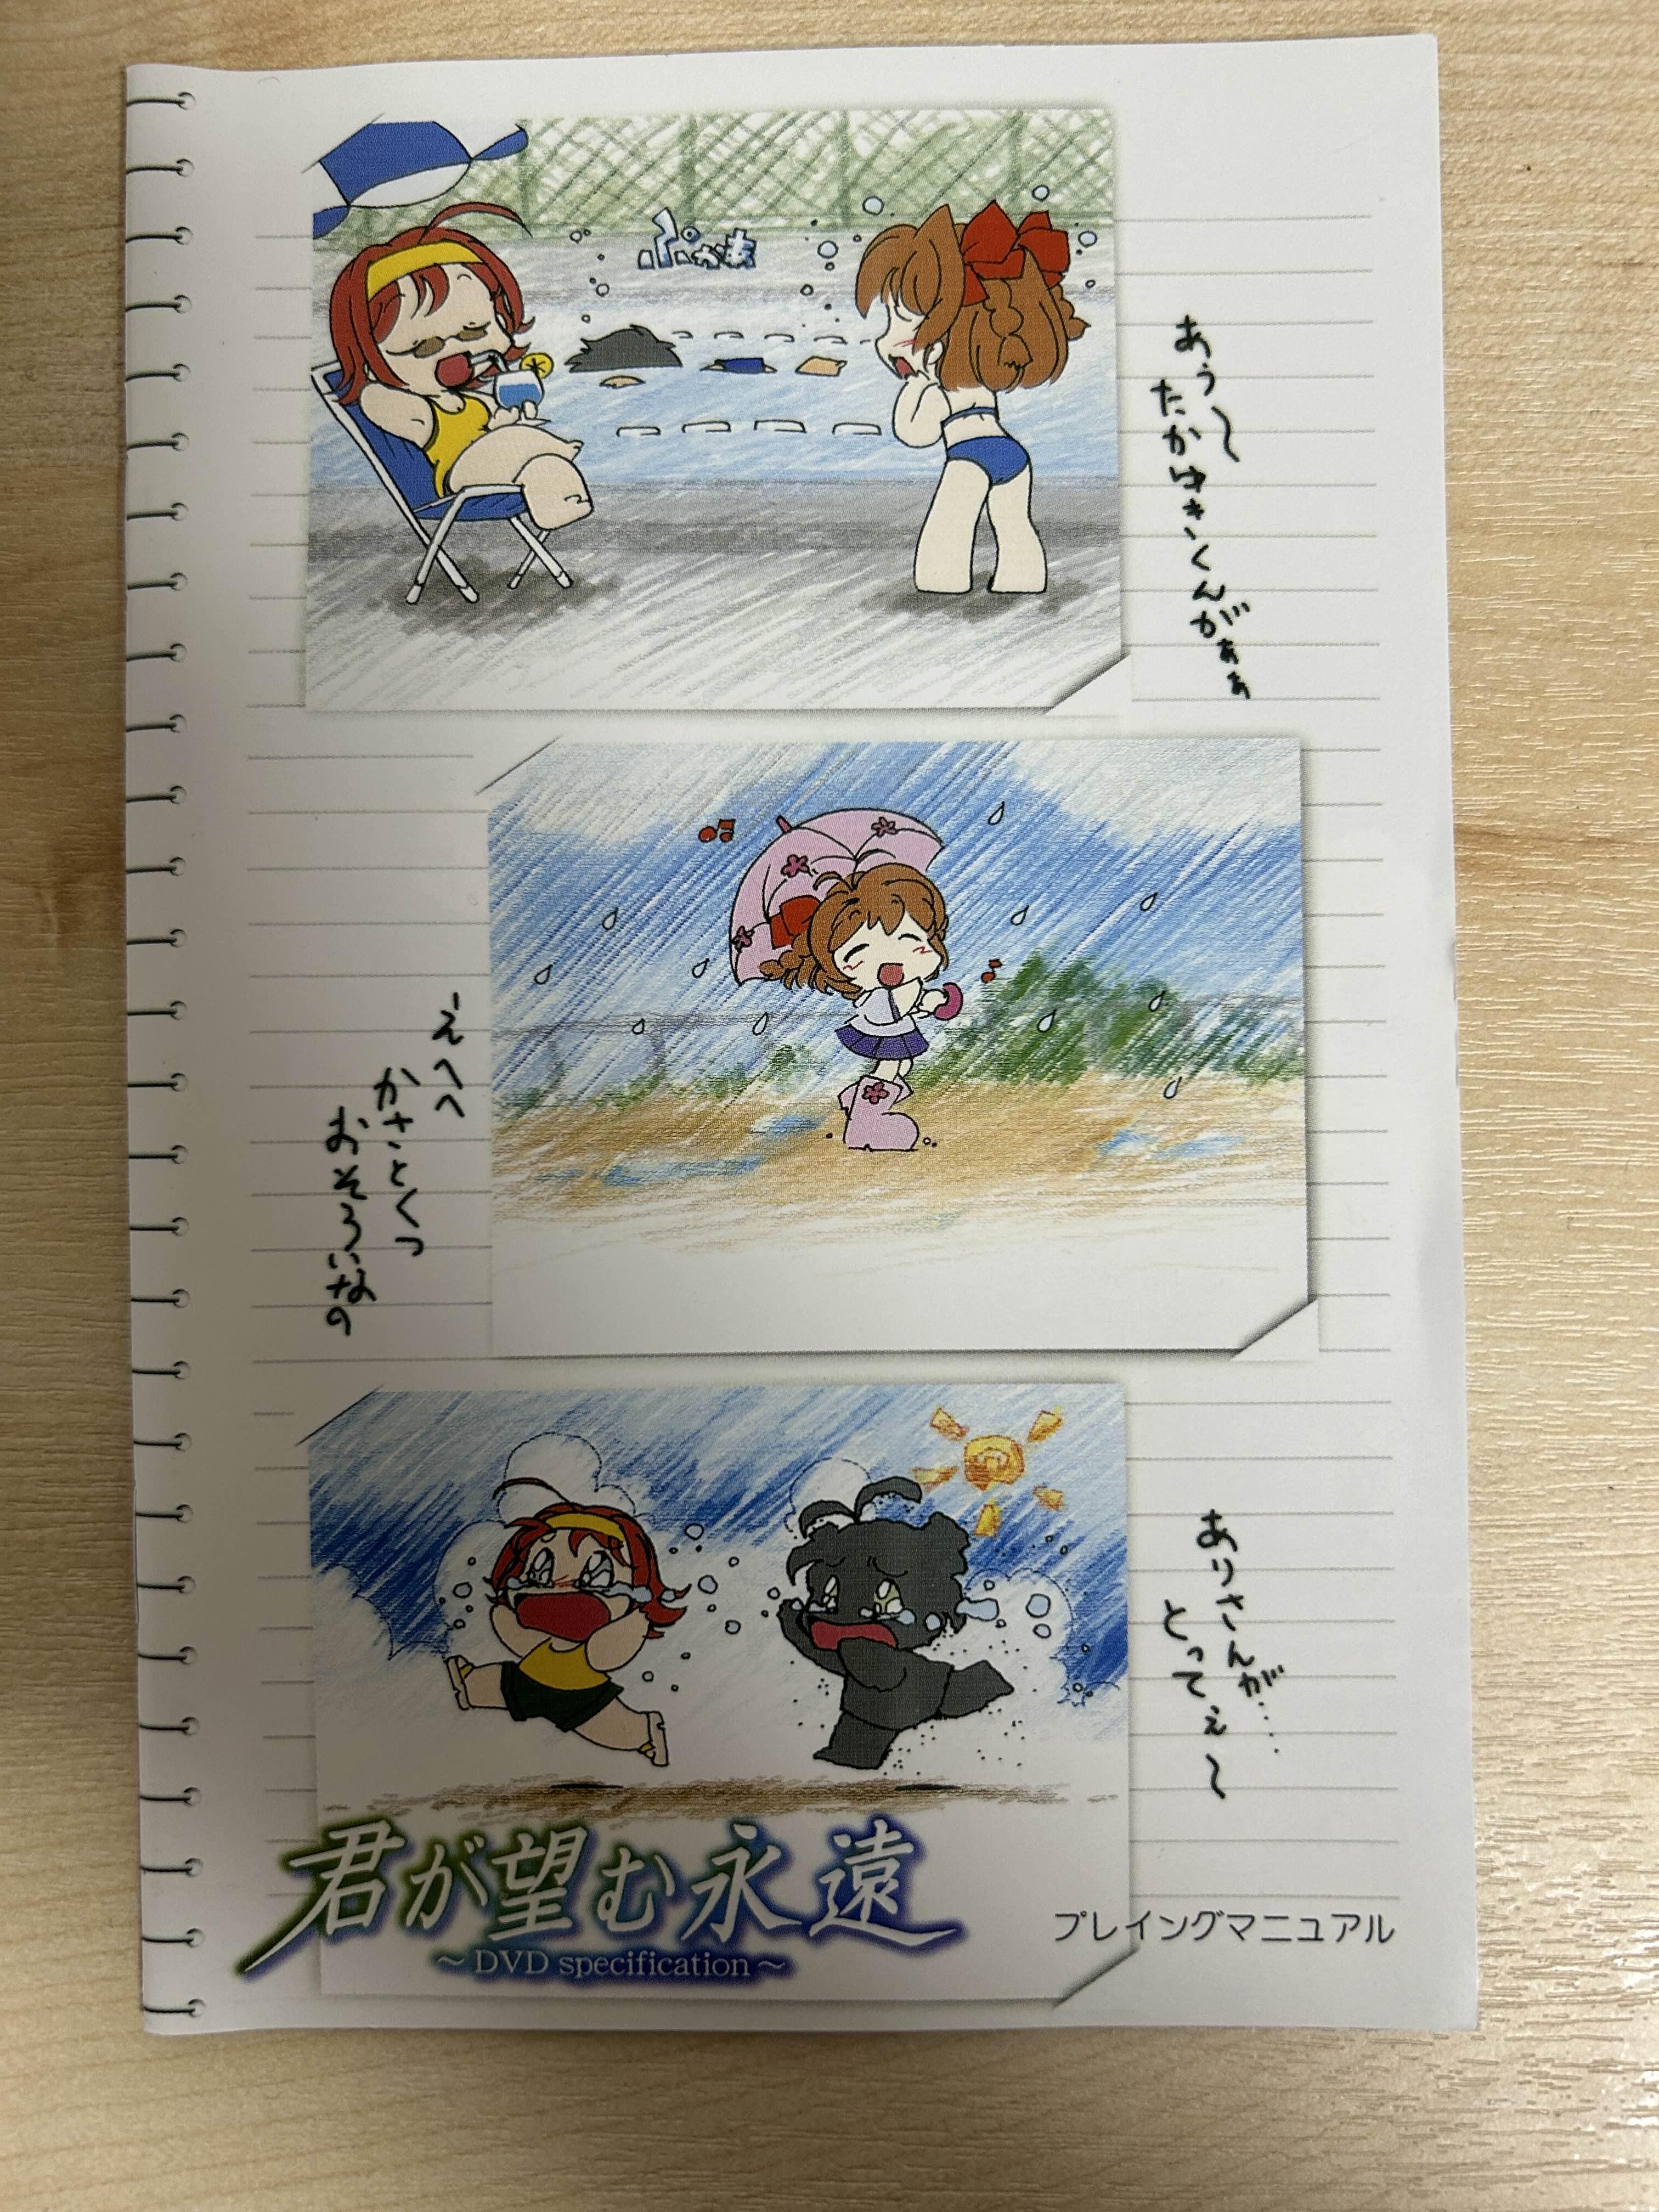 ぷかぁ
あぅ～
たかゆきくんがぁぁ
えへへ
かさとくつ
おそろいなの
ありさんが…
とってぇ～
君が望む永遠
～DVD specification～
プレイングマニュアル